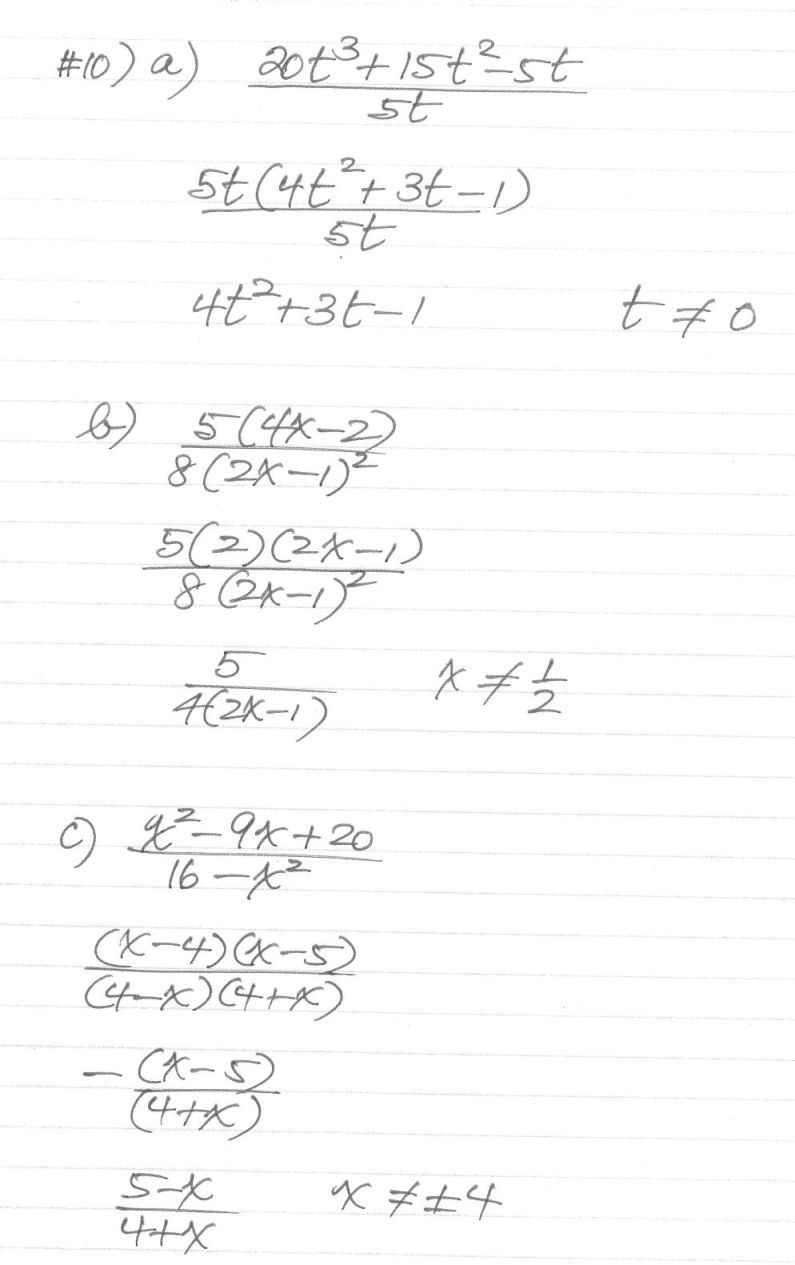 #10) a) (20t³+15t²-5t)/(5t)
5t(4t²+3t-1)/(5t)
4t²+3t-1 t≠0
b) 5(4x-2)/(8(2x-1)²)
5(2)(2x-1)/(8(2x-1)²)
5/(4(2x-1)) x≠1/2
c) (x²-9x+20)/(16-x²)
(x-4)(x-5)/((4-x)(4+x))
-(x-5)/(4+x)
(5-x)/(4+x) x≠±4